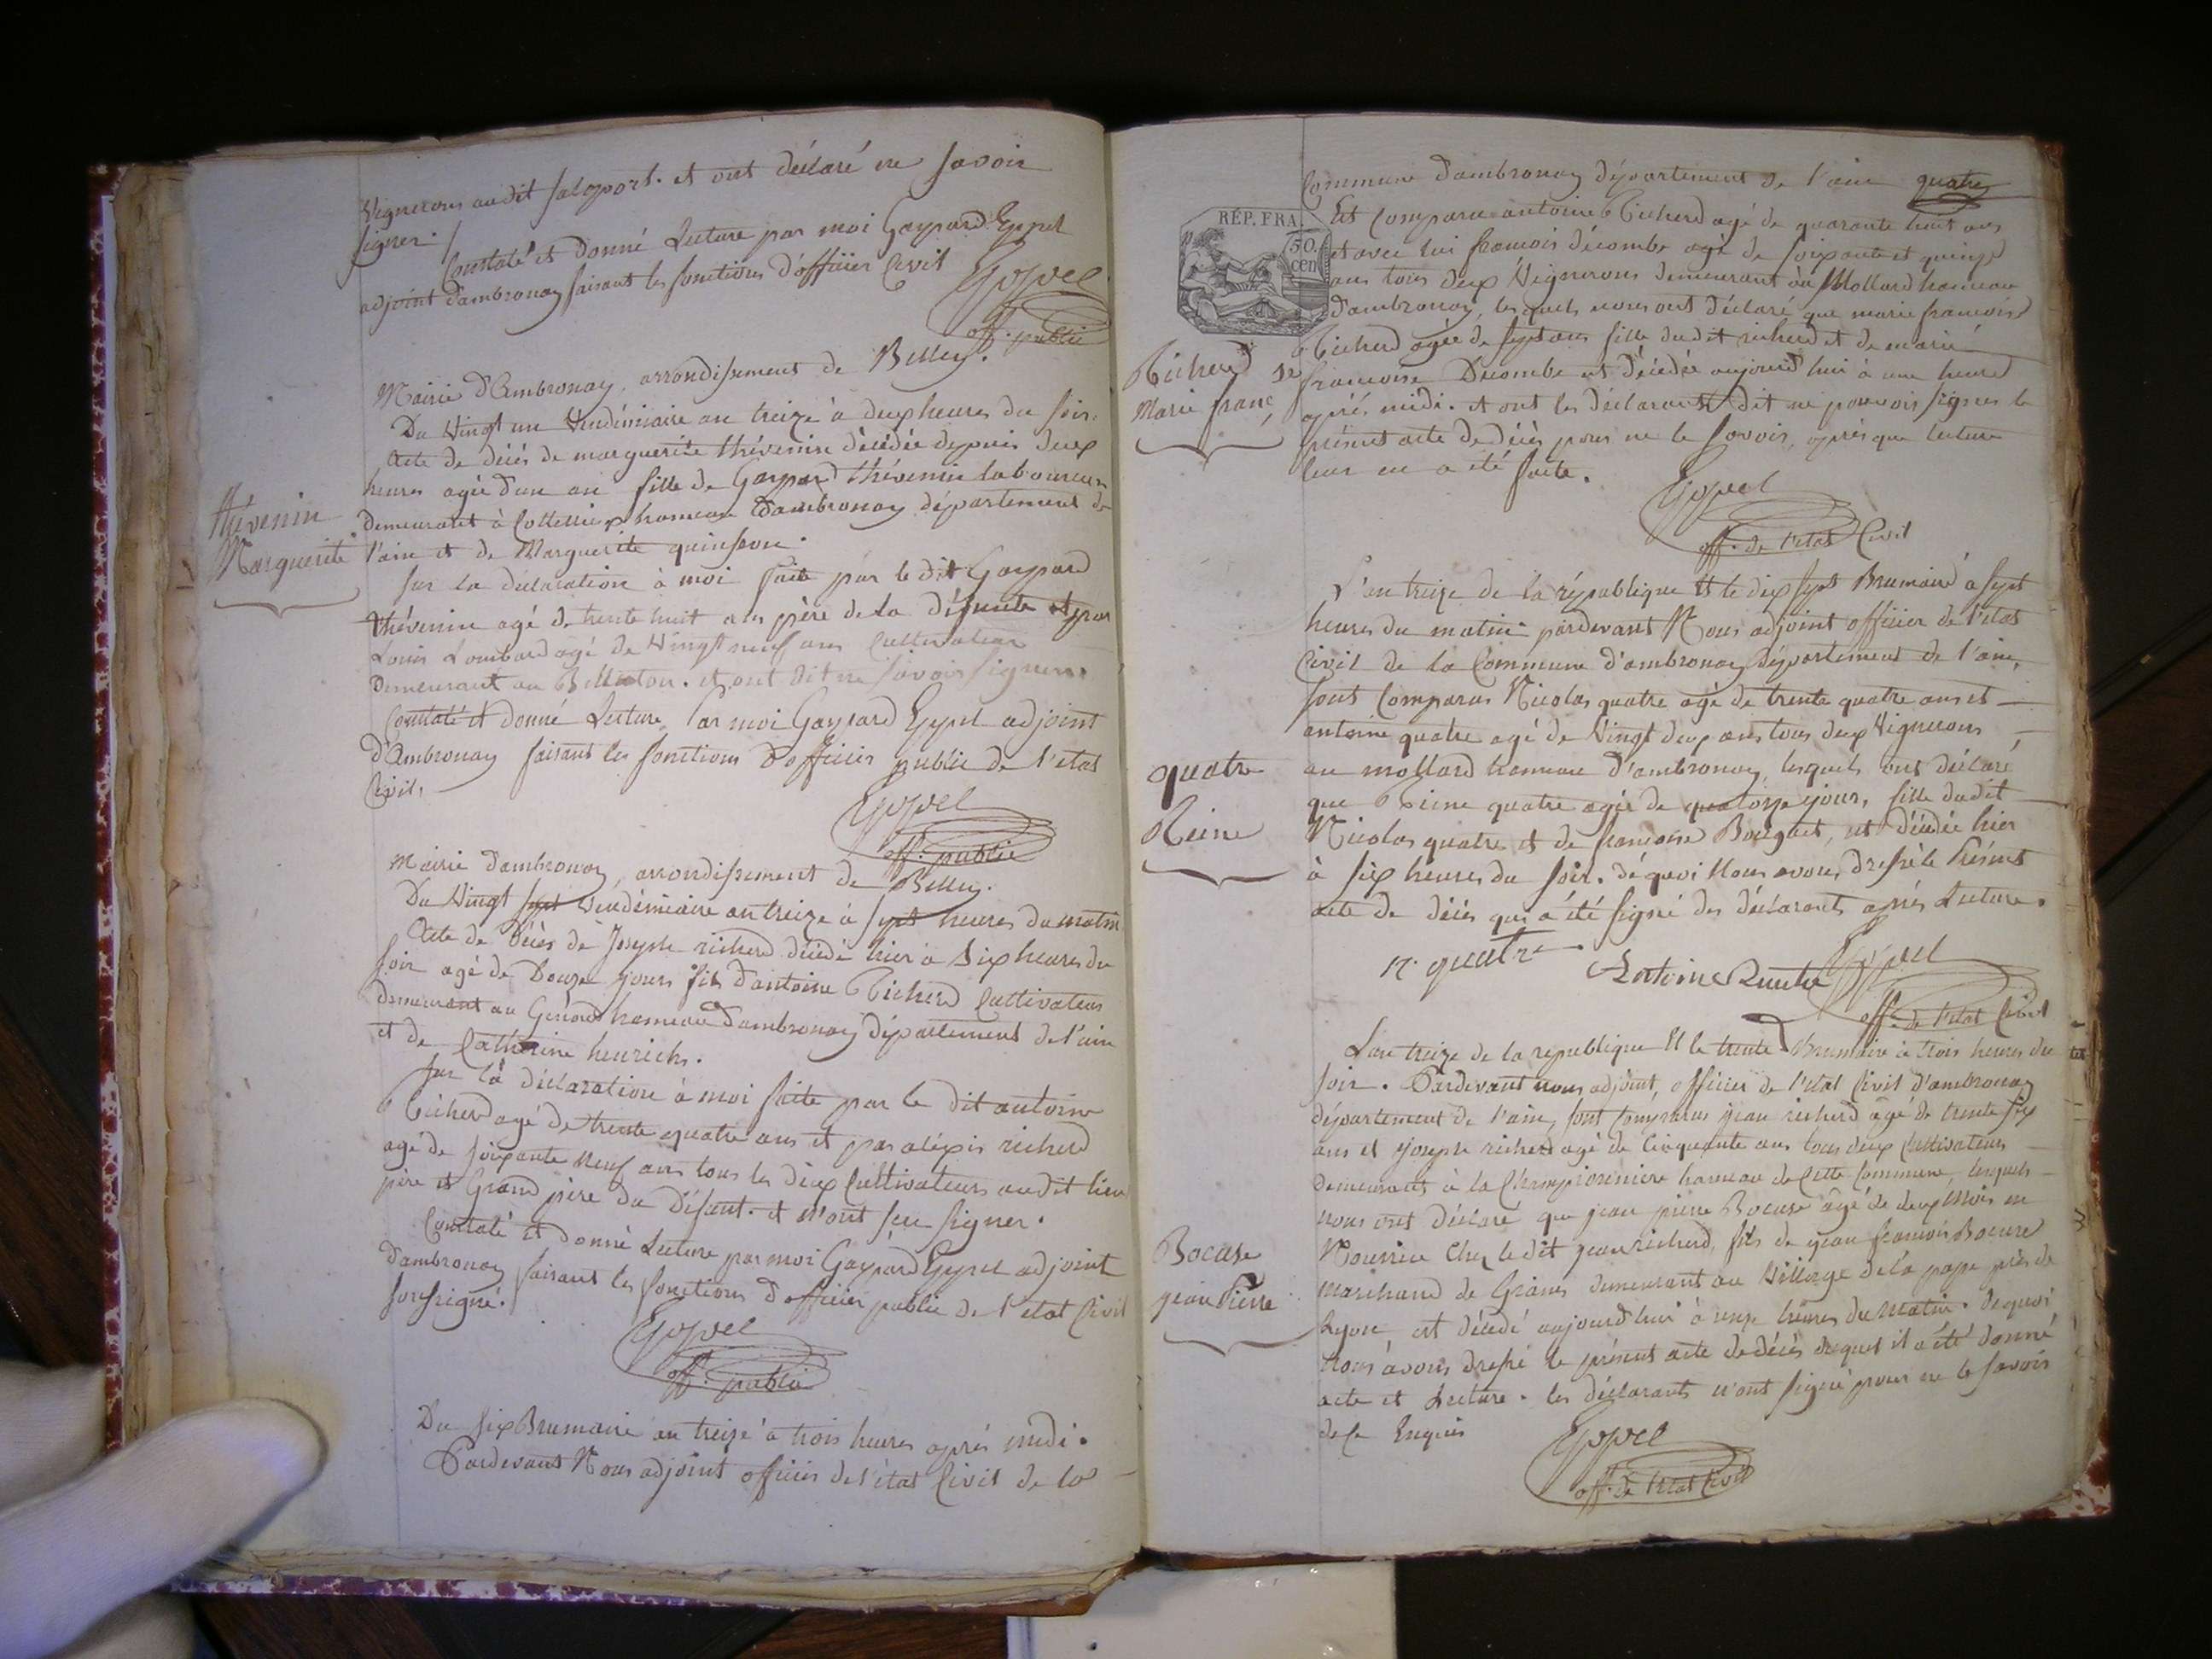 Vignerons audit Salaport. et ont déclaré ne savoir
signer. /
Constaté et donné Lecture par moi Gaspard Eypel
adjoint d'ambronay faisant les fonctions d'officier Civil
Eyppel
off. public
Mairie d'Ambronay, arrondissement de Belley.
Du Vingt un Vendémiaire an treize à deux heures du soir.
Acte de décès de marguerite thévenin décédée depuis deux
heures agée d'un an fille de Gaspard thévenin laboureur
Thévenin
Marguerite
demeurant à Cottessieux hameau d'ambronay département de
l'ain et de Marguerite quinson.
Sur la déclaration à moi faite par le dit Gaspard
thévenin agé de trente huit ans père de la défunte et par
Louis Lombard agé de Vingt neuf ans Cultivateur
demeurant au Belliaton. et ont dit ne savoir signer.
Constaté et donné Lecture, Par moi Gaspard Eypel adjoint
d'Ambronay faisant les fonctions d'officier public de l'etat
Civil.
Eyppel
off. public
Mairie d'ambronay, arrondissement de Belley.
Du Vingt sept Vendémiaire an treize à sept heures du matin
Acte de décès de Joseph richerd décédé hier à six heures du
soir agé de Douze jours fils d'antoine Richerd Cultivateur
demeurant au Genoud hameau d'ambronay département de l'ain
et de Catherine henrichs.
Sur la déclaration à moi faite par le dit antoine
Richerd agé de trente quatre ans et par alexis richerd
agé de soixante neuf ans tous les deux Cultivateurs audit lieu
père et Grand père du défunt. et n'ont seu signer.
Constaté et donné Lecture par moi Gaspard Eypel adjoint
d'ambronay faisant les fonctions d'officier public de l'etat Civil
soussigné.
Eyppel
off. public
Du six Brumaire an treize à trois heures après midi.
Pardevant Nous adjoint officier de l'état Civil de la
Commune d'ambronay département de l'ain quatre
RÉP. FRA.
50.
cen
Est Comparu antoine Richerd agé de quarante huit ans
et avec lui francois décombe agé de soixante et quinze
ans tous deux Vignerons demeurant au Mollard hameau
d'ambronay, lesquels nous ont déclaré que marie francoise
Richerd agée de sept ans fille dudit richerd et de marie
Richerd
Marie franç se
francoise Decombe est décédée aujourd'hui à une heure
après midi. et ont les déclarants dit ne pouvoir signer le
présent acte de décès pour ne le savoir, après que lecture
leur en a été faite.
Eyppel
off. de l'etat Civil
L'an treize de la république et le dix sept Brumaire à sept
heures du matin pardevant Nous adjoint officier de l'etat
Civil de la Commune d'ambronay département de l'ain,
sont Comparus Nicolas quatre agé de trente quatre ans et
antoine quatre agé de Vingt deux ans tous deux Vignerons
quatre
Reine
au mollard hameau d'ambronay, lesquels ont déclaré
que Reine quatre agée de quatorze jours, fille dudit
Nicolas quatre et de francoise Bouquet, est décédée hier
à six heures du soir. de quoi Nous avons dressé le Présent
acte de décès qui a été signé des déclarants après Lecture.
N. quatre Antoine Quatre Eyppel
off. de l'etat Civil
L'an treize de la republique et le trente Brumaire à trois heures du
soir. Pardevant nous adjoint, officier de l'etat Civil d'ambronay
département de l'ain, sont Comparus jean richerd agé de trente six
ans et joseph richerd agé de Cinquante ans tous deux Cultivateurs
demeurants à la Championniere hameau de Cette Commune, lesquels
nous ont déclaré que jean pierre Bocuse agé de deux Mois en
Bocuse
jean Pierre
Nourrice Chez le dit jean richerd, fils de jean francois Bocuse
marchand de Grains demeurant au Village de la pape près de
Lyon, est décédé aujourd'hui à onze heures du Matin. de quoi
Nous avons dressé le présent acte de décès duquel il a été donné
acte et Lecture. les déclarants n'ont signé pour ne le savoir
de ce Enquis
Eyppel
off. de l'etat Civil